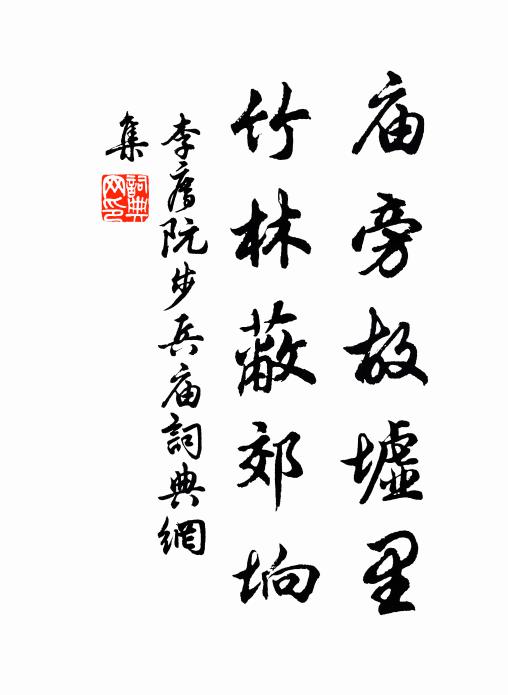 庙旁故墟里
竹林蔽郊坰
李廌阮步兵庙詞典網
集
詞典网印